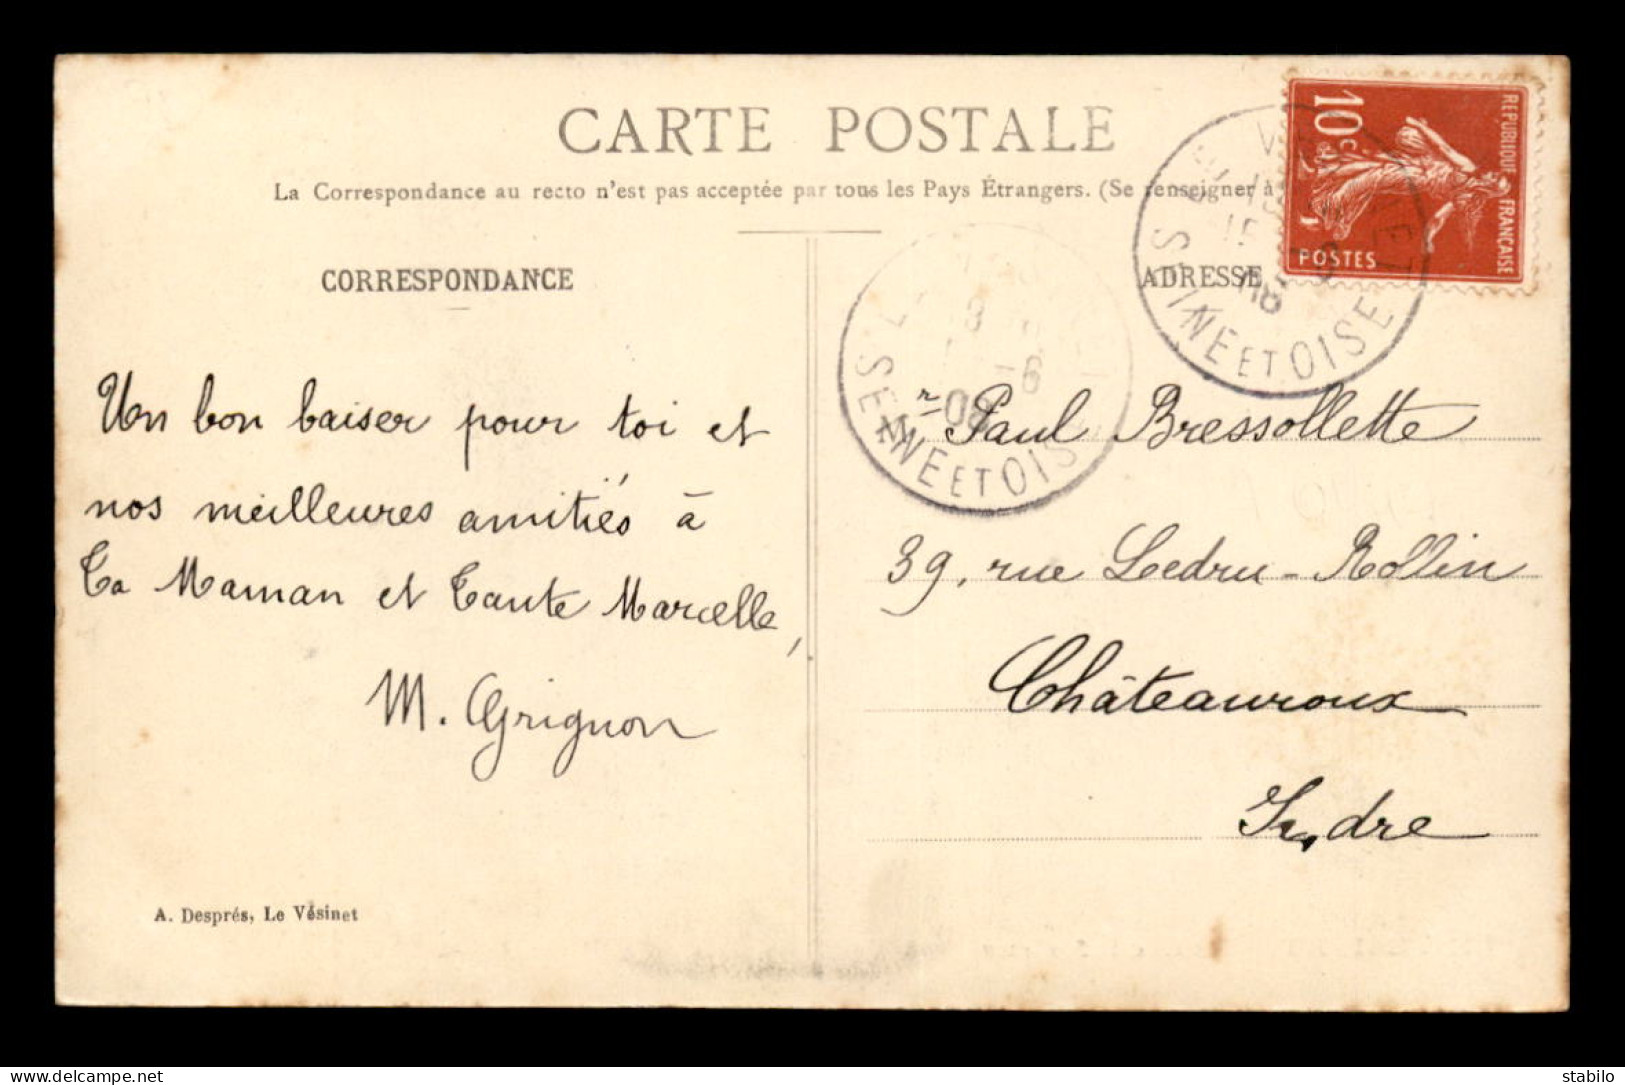 CARTE POSTALE
La Correspondance au recto n'est pas acceptée par tous les Pays Étrangers. (Se renseigner à
CORRESPONDANCE
ADRESSE
10c
REPUBLIQUE FRANÇAISE
POSTES
SEINE ET OISE
-6
08
SEINE ET OIS
Un bon baiser pour toi et
nos meilleures amitiés à
Ta Maman et Tante Marcelle,
M. Grignon
Mr Paul Bressollette
39, rue Ledru-Rollin
Châteauroux
Indre
A. Després, Le Vésinet
delcampe.net
stabilo